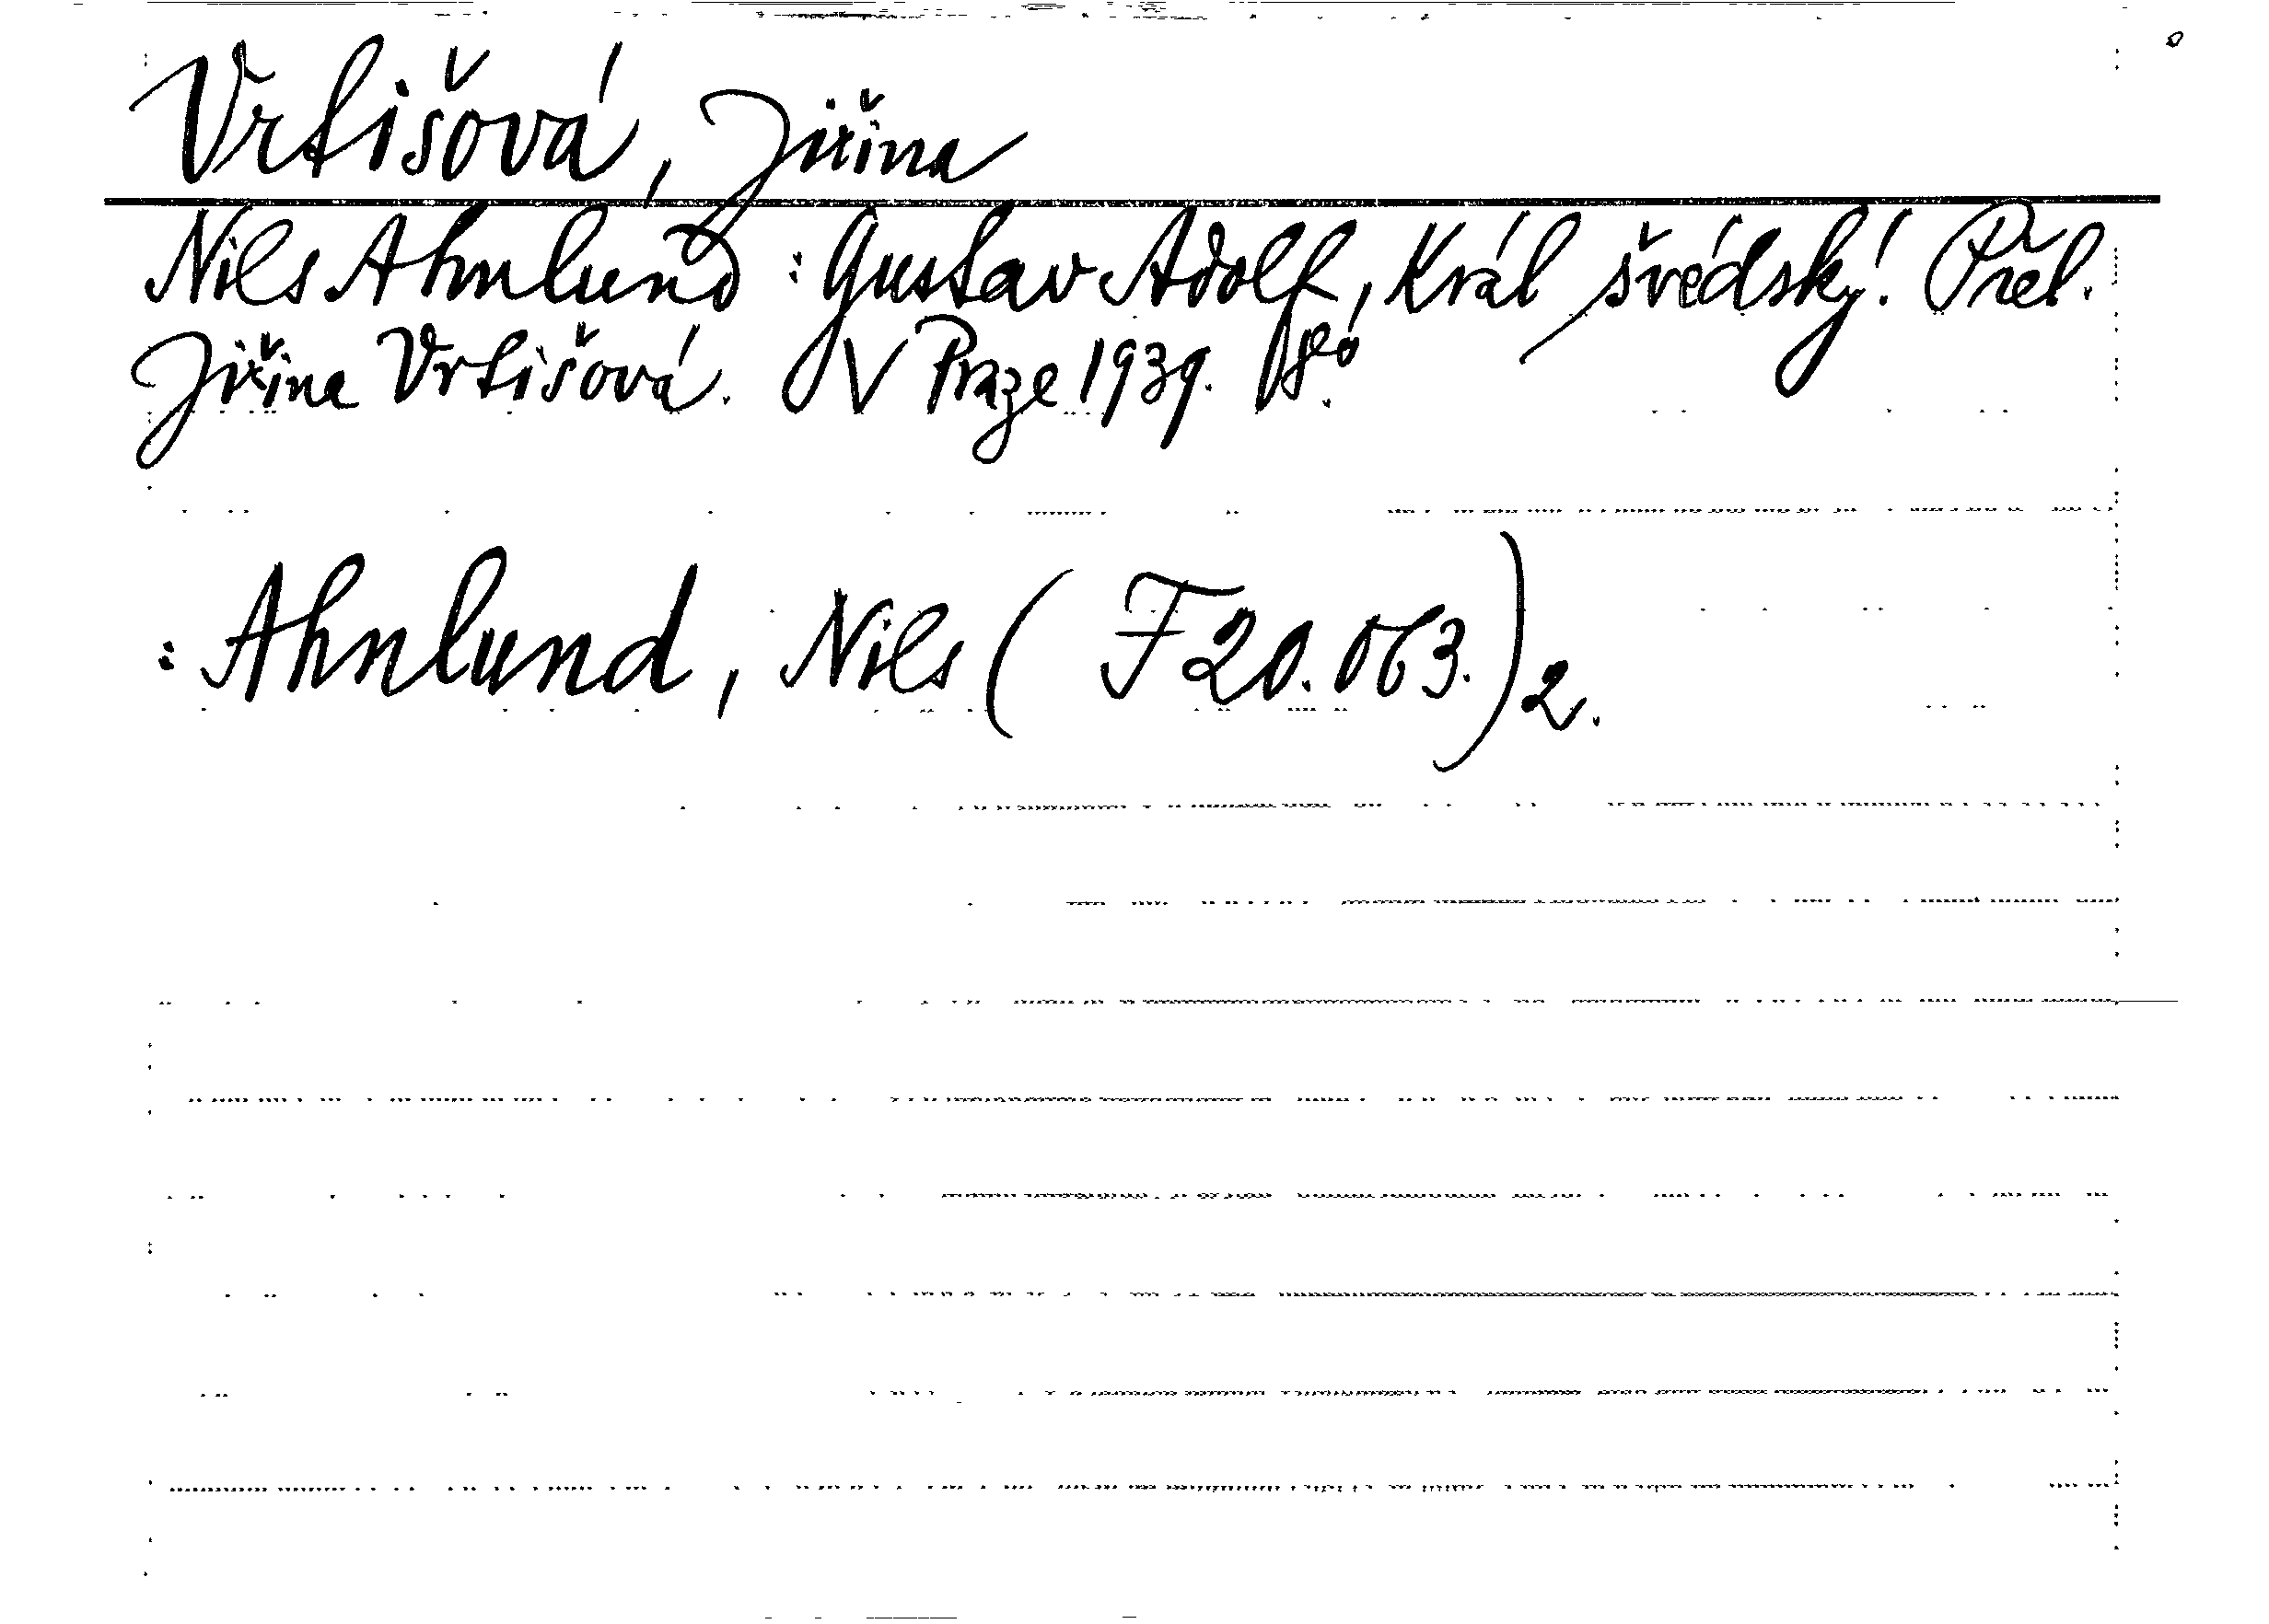 Vrtišová, Jiřina
Nils Ahnlund: Gustav Adolf, Král švédský. Přel.
Jiřina Vrtišová. V Praze 1939. 8º.
: Ahnlund, Nils (F 20.063.) 2.